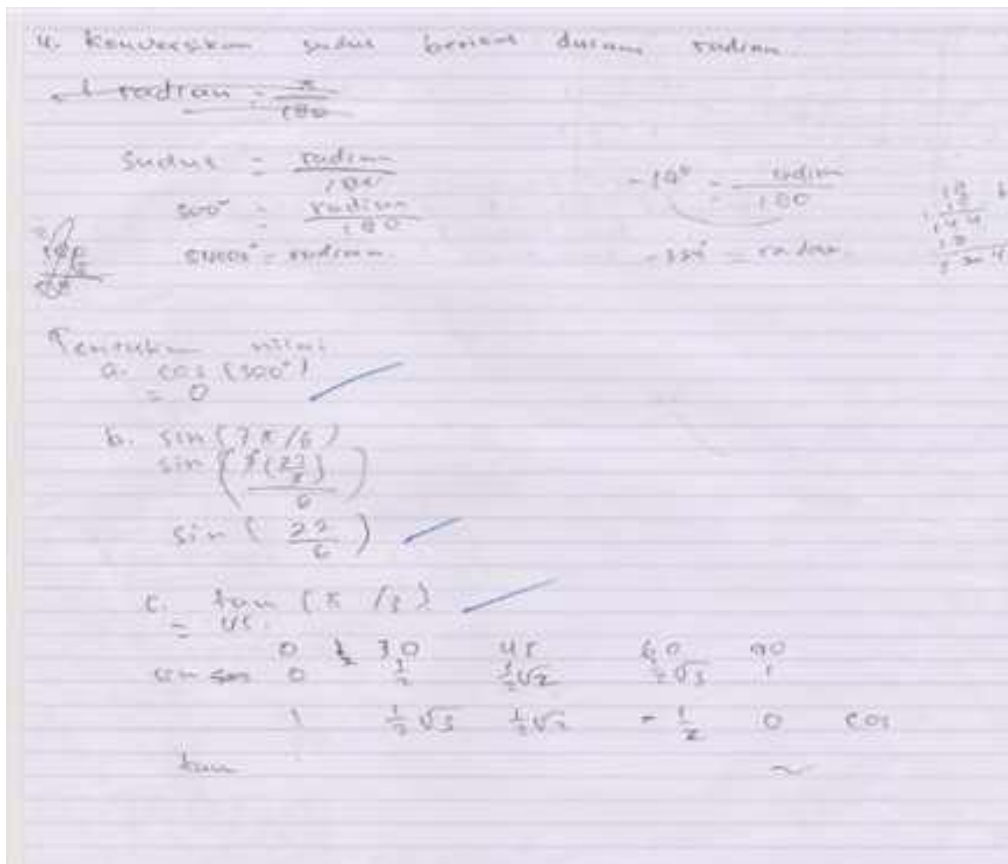 4. Konversikan sudus dalam radian
1 radian = π/180
Sudus = radian/180
300° = radian/180
54000° = radian
-18° = radian/180
= radian
Tentukan nilai
a. cos (300°)
= 0
b. sin (7π/6)
sin (7(22/7)/6)
sin (22/6)
c. tan (π/3)
= √3
0 30 45 60 90
sin 0 1/2 1/2√2 1/2√3 1
1 1/2√3 1/2√2 - 1/2 0 cos
tan ~